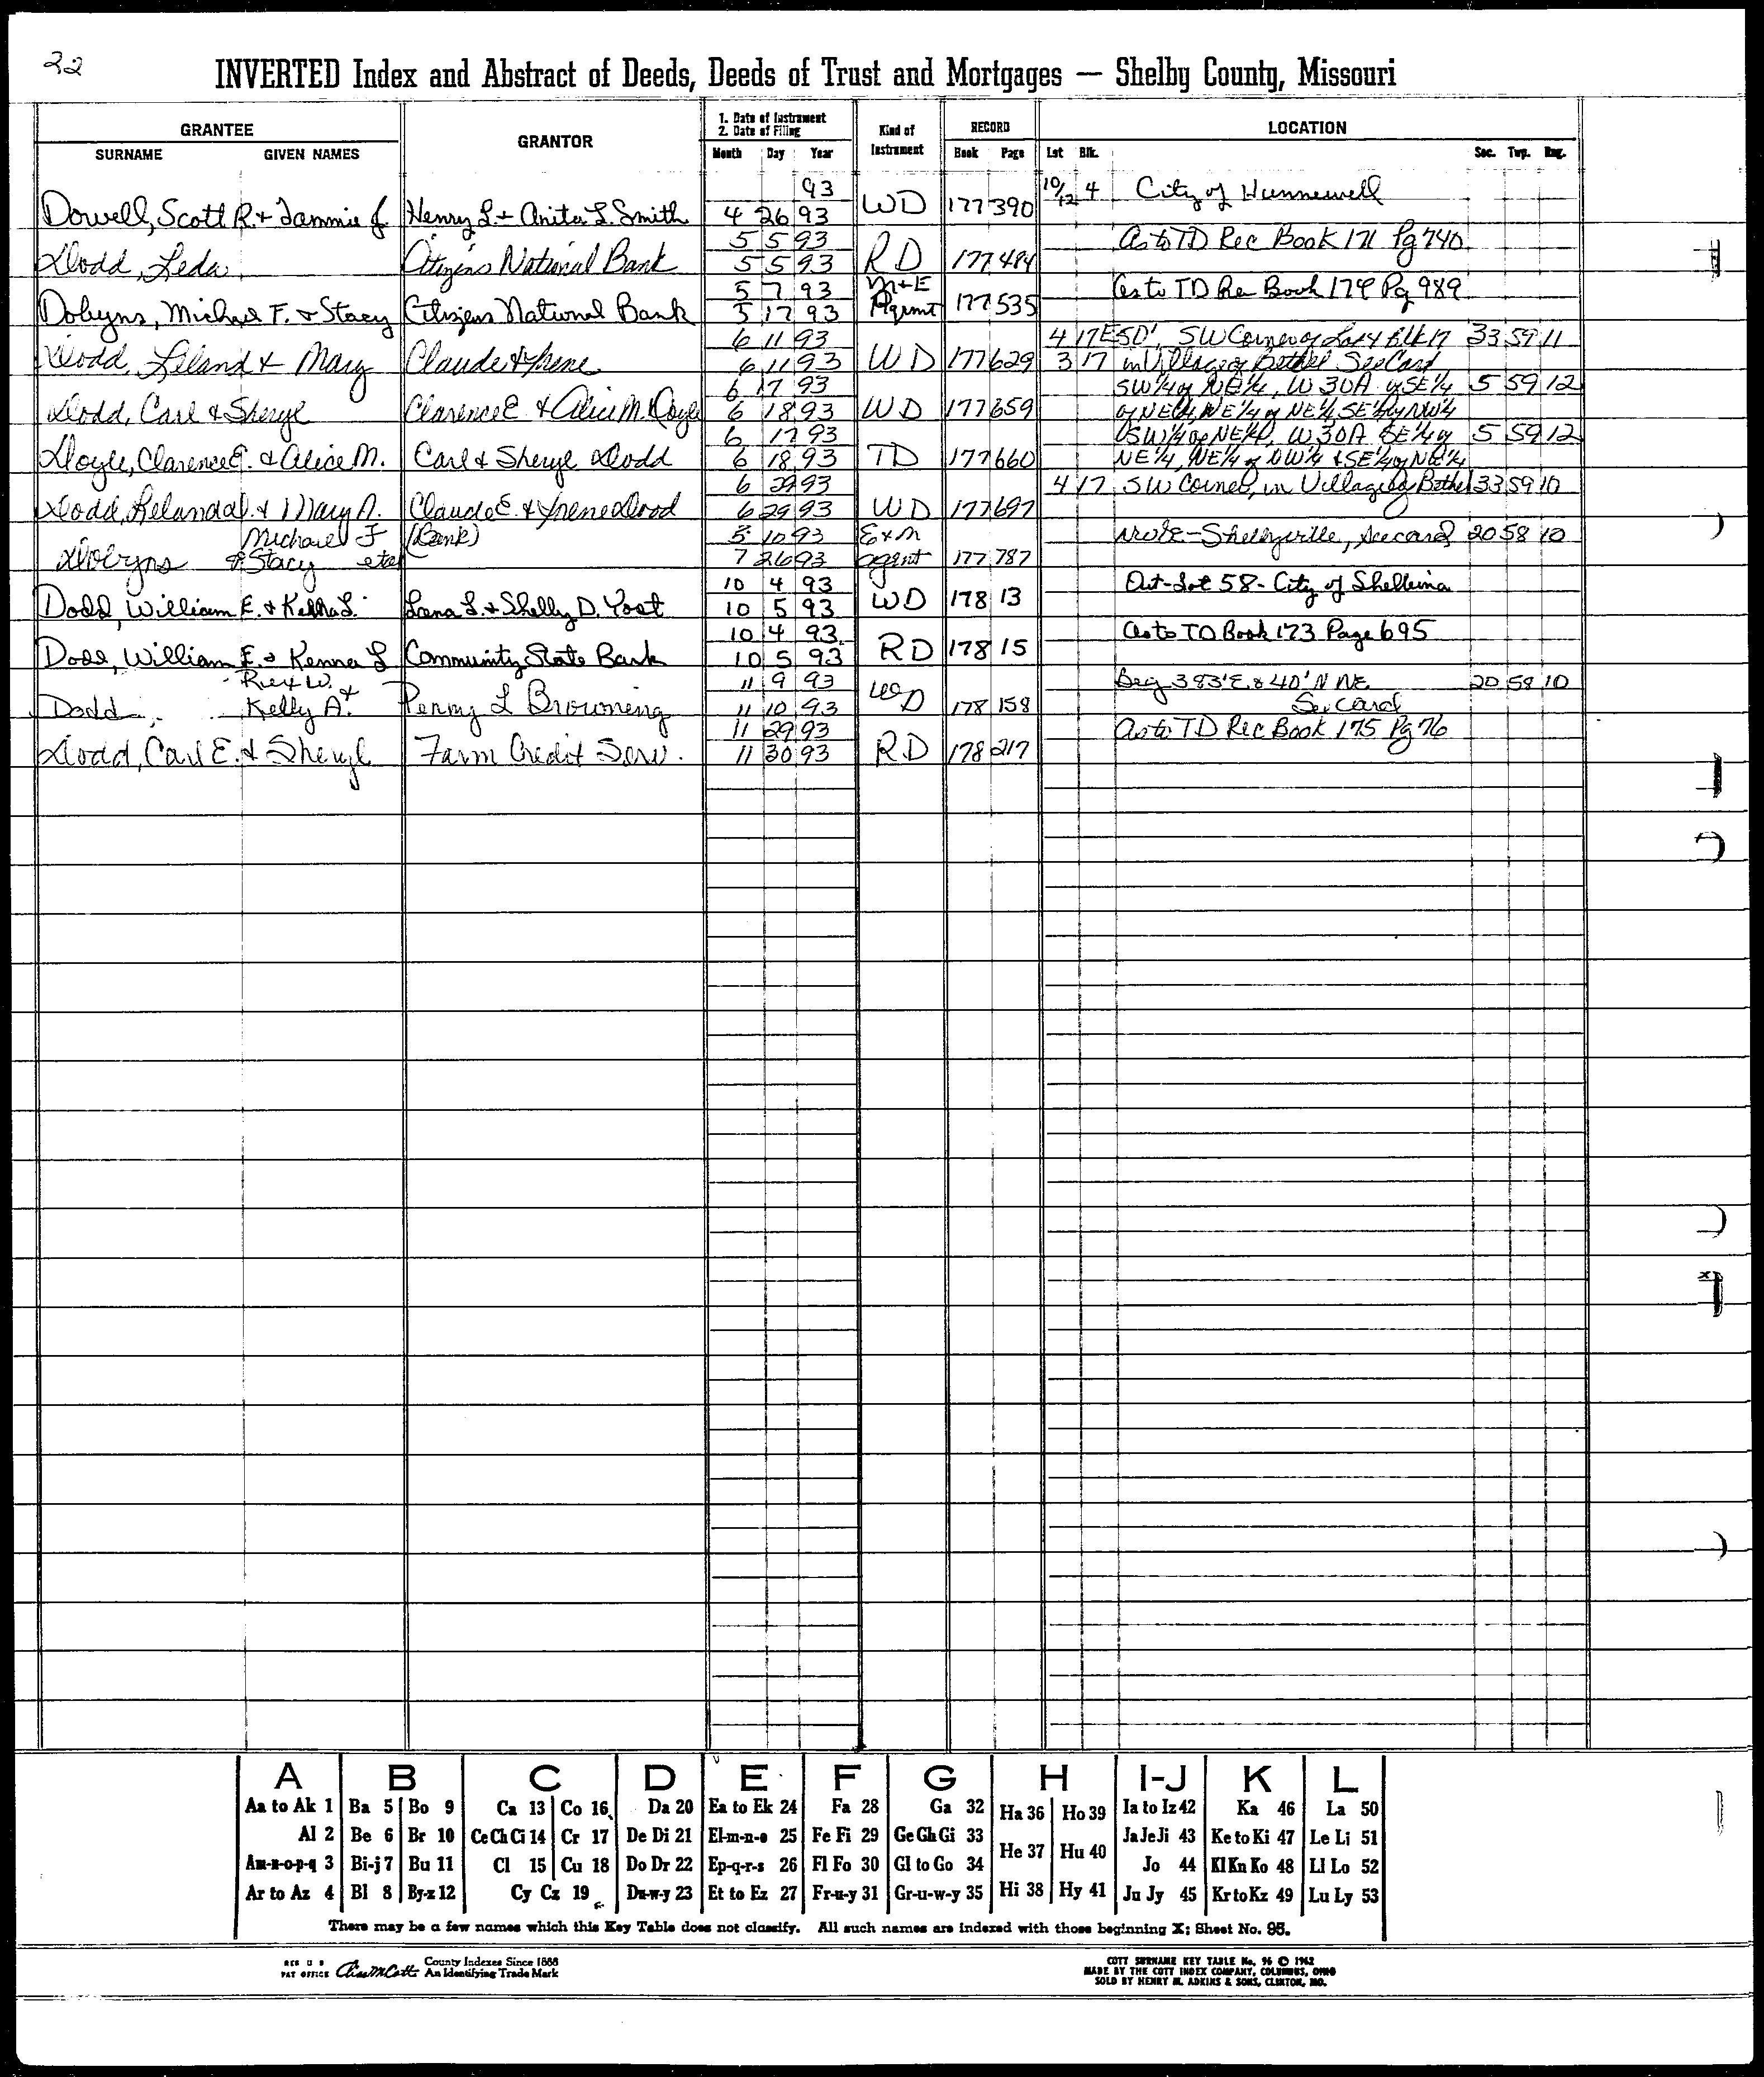 22
INVERTED Index and Abstract of Deeds, Deeds of Trust and Mortgages — Shelby County, Missouri
GRANTEE GRANTOR 1. Date of Instrument 2. Date of Filing Kind of Instrument RECORD LOCATION
SURNAME GIVEN NAMES Month Day Year Book Page Lot Blk. Sec. Twp. Rng.
93 10/12 4 City of Hunnewell
Dowell, Scott R. + Tammie J. Henry L. + Anita L. Smith 4 26 93 WD 177 390
5 5 93 As to TD Rec Book 171 Pg 740
Dodd, Leda Citizens National Bank 5 5 93 RD 177 484
5 7 93 M+E As to TD Re Book 174 Pg 989
Dobyns, Michael F. & Stacy Citizens National Bank 5 17 93 Agrmt 177 535
6 11 93 4 17 E50', SW Corner of Lot 4 Blk 17 33 59 11
Dodd, Leland & Mary Claude & Irene 6 11 93 WD 177 629 3 17 in Village of Bethel See Card
6 17 93 SW 1/4 of NE 1/4, W 30A of SE 1/4 5 59 12
Dodd, Carl & Sheryl Clarence E. & Alice M. Doyle 6 18 93 WD 177 659 of NE 1/4, NE 1/4 of NE 1/4 SE 1/4 of NW 1/4
6 17 93 SW 1/4 of NE 1/4, W 30A SE 1/4 of 5 59 12
Doyle, Clarence E. & Alice M. Carl & Sheryl Dodd 6 18 93 TD 177 660 NE 1/4, NE 1/4 of NW 1/4 & SE 1/4 of NE 1/4
6 29 93 4 17 SW Corner, in Village of Bethel 33 59 10
Dodd, Leland & Mary A. Claude E. & Irene Dodd 6 29 93 WD 177 697
Michael F (Bank) 5 10 93 E&M Shelbyville, see card 20 58 10
Dobyns & Stacy etal 7 26 93 agmt 177 787
10 4 93 Out-Lot 58- City of Shelbina
Dodd, William E. & L. Lena L. & Shelly D. Yost 10 5 93 WD 178 13
10 4 93 As to TD Book 173 Page 695
Dodd, William E. & L Community State Bank 10 5 93 RD 178 15
Rex W. & 11 9 93 Beg 383' E. & 40' N NE 20 58 10
Dodd, Kelly A. Penny L Browning 11 10 93 WD 178 158 See Card
11 29 93 As to TD Rec Book 175 Pg 76
Dodd, Carl E. & Sheryl Farm Credit Serv. 11 30 93 RD 178 217
A B C D E F G H I-J K L
Aa to Ak 1 Ba 5 Bo 9 Ca 13 Co 16 Da 20 Ea to Ek 24 Fa 28 Ga 32 Ha 36 Ho 39 Ia to Iz 42 Ka 46 La 50
Al 2 Be 6 Br 10 Ce Ch Ci 14 Cr 17 De Di 21 El-m-n-o 25 Fe Fi 29 Ge Gh Gi 33 He 37 Hu 40 Ja Je Ji 43 Ke to Ki 47 Le Li 51
Am-n-o-p-q 3 Bi-j 7 Bu 11 Cl 15 Cu 18 Do Dr 22 Ep-q-r-s 26 Fl Fo 30 Gl to Go 34 Jo 44 Kl Kn Ko 48 Ll Lo 52
Ar to Az 4 Bl 8 By-z 12 Cy Cz 19 Du-w-y 23 Et to Ez 27 Fr-u-y 31 Gr-u-w-y 35 Hi 38 Hy 41 Ju Jy 45 Kr to Kz 49 Lu Ly 53
There may be a few names which this Key Table does not classify. All such names are indexed with those beginning X; Sheet No. 95.
REG U S PAT OFFICE County Indexes Since 1888 An Identifying Trade Mark
COTT SURNAME KEY TABLE No. 96 © 1962
MADE BY THE COTT INDEX COMPANY, COLUMBUS, OHIO
SOLD BY HENRY M. ADKINS & SONS, CLINTON, MO.